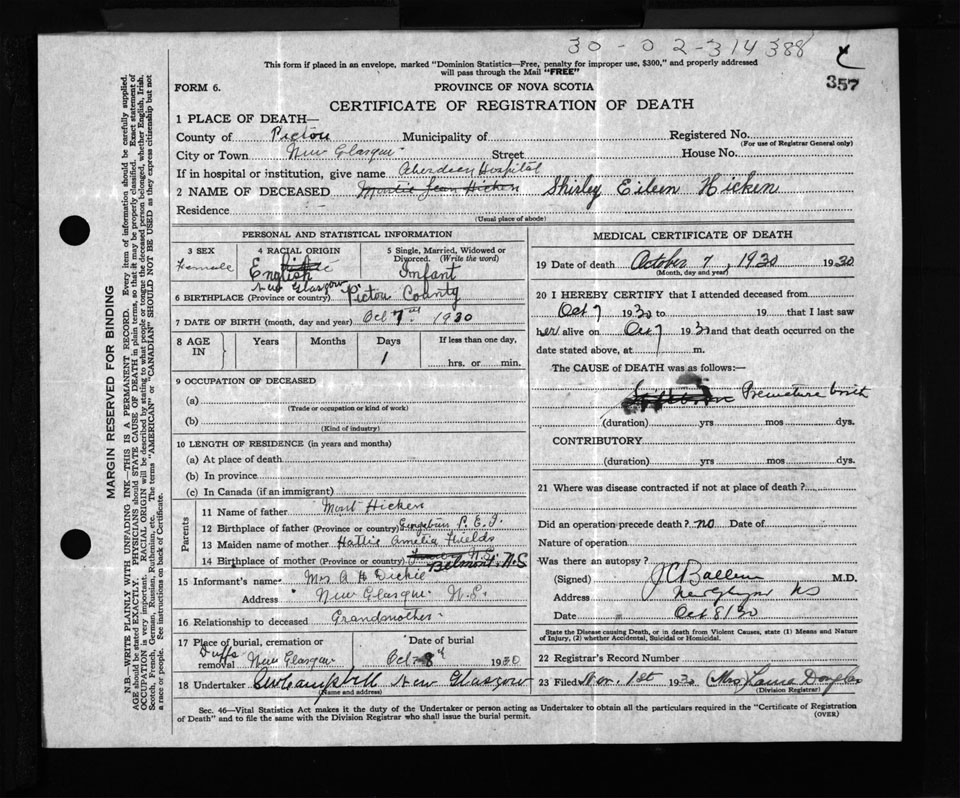 30-02-314388
357
This form if placed in an envelope, marked "Dominion Statistics—Free, penalty for improper use, $300," and properly addressed
will pass through the Mail "FREE"
FORM 6.
PROVINCE OF NOVA SCOTIA
CERTIFICATE OF REGISTRATION OF DEATH
1 PLACE OF DEATH—
County of Pictou Municipality of Registered No.
(For use of Registrar General only)
City or Town New Glasgow Street House No.
If in hospital or institution, give name Aberdeen Hospital
2 NAME OF DECEASED Jean Hicken Shirley Eileen Hicken
Residence
(Usual place of abode)
PERSONAL AND STATISTICAL INFORMATION
3 SEX Female
4 RACIAL ORIGIN English
5 Single, Married, Widowed or Divorced. (Write the word) Infant
6 BIRTHPLACE (Province or country) New Glasgow Pictou County
7 DATE OF BIRTH (month, day and year) Oct 7th 1930
8 AGE IN Years Months Days If less than one day,
1 hrs. or min.
9 OCCUPATION OF DECEASED
(a)
(Trade or occupation or kind of work)
(b)
(Kind of industry)
10 LENGTH OF RESIDENCE (in years and months)
(a) At place of death
(b) In province
(c) In Canada (if an immigrant)
Parents
11 Name of father Mont Hicken
12 Birthplace of father (Province or country) P.E.I.
13 Maiden name of mother Hattie Amelia Fields
14 Birthplace of mother (Province or country) N.S. Belmont, N.S
15 Informant's name Mrs. A H Dickie
Address New Glasgow N.S.
16 Relationship to deceased Grandmother
17 Place of burial, cremation or removal Duffs New Glasgow
Date of burial Oct 8th 1930
18 Undertaker Campbell New Glasgow
(Name and address)
MEDICAL CERTIFICATE OF DEATH
19 Date of death October 7, 1930 1930
(Month, day and year)
20 I HEREBY CERTIFY that I attended deceased from
Oct 7 1930 to 19 that I last saw
her alive on Oct 7 1930 and that death occurred on the
date stated above, at m.
The CAUSE of DEATH was as follows:—
Premature birth
(duration) yrs mos dys.
CONTRIBUTORY
(duration) yrs mos dys.
21 Where was disease contracted if not at place of death?
Did an operation precede death? no Date of
Nature of operation
Was there an autopsy?
(Signed) M.D.
Address New Glasgow NS
Date Oct 8/30
State the Disease causing Death, or in death from Violent Causes, state (1) Means and Nature
of Injury, (2) whether Accidental, Suicidal or Homicidal.
22 Registrar's Record Number
23 Filed Nov. 1st 1930 Mrs Douglas
(Division Registrar)
Sec. 46—Vital Statistics Act makes it the duty of the Undertaker or person acting as Undertaker to obtain all the particulars required in the "Certificate of Registration
of Death" and to file the same with the Division Registrar who shall issue the burial permit.
(OVER)
MARGIN RESERVED FOR BINDING
N.B.—WRITE PLAINLY WITH UNFADING INK—THIS IS A PERMANENT RECORD. Every item of information should be carefully supplied.
AGE should be stated EXACTLY. PHYSICIANS should STATE CAUSE OF DEATH in plain terms, so that it may be properly classified. Exact statement of
OCCUPATION is very important. RACIAL ORIGIN will be described by stating to what people or tongue the deceased person belonged, whether English, Irish,
Scotch, French, German, Russian, Ruthenian, etc. The terms "AMERICAN" or "CANADIAN" SHOULD NOT BE USED as they express citizenship but not
a race or people. See instructions on back of Certificate.